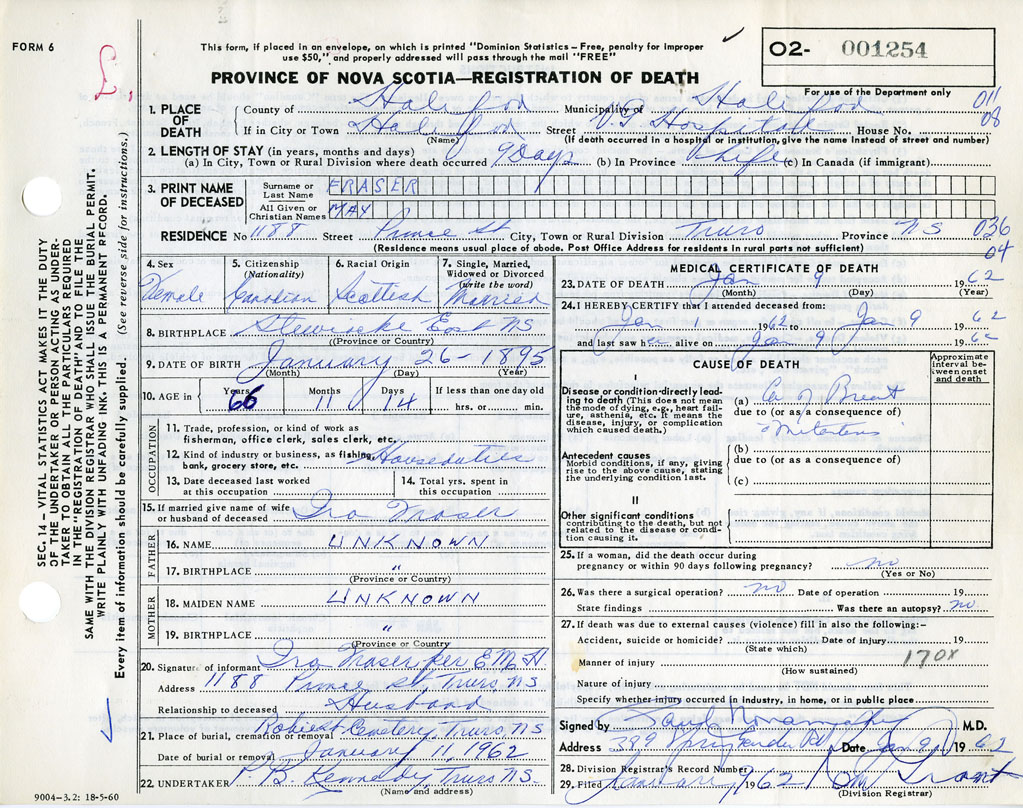 FORM 6
This form, if placed in an envelope, on which is printed "Dominion Statistics – Free, penalty for improper
use $50," and properly addressed will pass through the mail "FREE"
O2- 001254
For use of the Department only
PROVINCE OF NOVA SCOTIA—REGISTRATION OF DEATH
011
08
1. PLACE OF DEATH
County of Halifax Municipality of Halifax
If in City or Town Halifax Street V.G. Hospital House No.
(Name) (If death occurred in a hospital or institution, give the name instead of street and number)
2. LENGTH OF STAY (in years, months and days)
(a) In City, Town or Rural Division where death occurred 9 Days (b) In Province Life (c) In Canada (if immigrant)
3. PRINT NAME OF DECEASED
Surname or Last Name FRASER
All Given or Christian Names MAY
RESIDENCE No 1188 Street Prince St City, Town or Rural Division Truro Province NS 036
04
(Residence means usual place of abode. Post Office Address for residents in rural parts not sufficient)
4. Sex Female
5. Citizenship (Nationality) Canadian
6. Racial Origin Scottish
7. Single, Married, Widowed or Divorced (write the word) Married
8. BIRTHPLACE Stewiacke East NS
(Province or Country)
9. DATE OF BIRTH January 26 – 1895
(Month) (Day) (Year)
10. AGE in Years 66 Months 11 Days 14 If less than one day old
hrs. or min.
OCCUPATION
11. Trade, profession, or kind of work as
fisherman, office clerk, sales clerk, etc.
12. Kind of industry or business, as fishing, Houseduties
bank, grocery store, etc.
13. Date deceased last worked
at this occupation
14. Total yrs. spent in
this occupation
15. If married give name of wife
or husband of deceased Ira Fraser
FATHER
16. NAME UNKNOWN
17. BIRTHPLACE "
(Province or Country)
MOTHER
18. MAIDEN NAME UNKNOWN
19. BIRTHPLACE "
(Province or Country)
20. Signature of informant Ira Fraser per E.M.H
Address 1188 Prince St, Truro, NS
Relationship to deceased Husband
21. Place of burial, cremation or removal Cemetery, Truro, NS
Date of burial or removal January 11, 1962
22. UNDERTAKER P.B. Kennedy Truro NS.
(Name and address)
9004-3.2: 18-5-60
MEDICAL CERTIFICATE OF DEATH
23. DATE OF DEATH Jan 9 1962
(Month) (Day) (Year)
24. I HEREBY CERTIFY that I attended deceased from:
Jan 1 1962 to Jan 9 1962
and last saw her alive on Jan 9 1962
CAUSE OF DEATH
Approximate interval between onset and death
I
Disease or condition directly leading to death (This does not mean the mode of dying, e.g., heart failure, asthenia, etc. It means the disease, injury, or complication which caused death.)
(a) Ca of Breast
due to (or as a consequence of)
Antecedent causes
Morbid conditions, if any, giving rise to the above cause, stating the underlying condition last.
(b)
due to (or as a consequence of)
(c)
II
Other significant conditions
contributing to the death, but not related to the disease or condition causing it.
25. If a woman, did the death occur during
pregnancy or within 90 days following pregnancy? no
(Yes or No)
26. Was there a surgical operation? no Date of operation 19
State findings Was there an autopsy? no
27. If death was due to external causes (violence) fill in also the following:–
Accident, suicide or homicide? Date of injury 19
(State which)
170X
Manner of injury
(How sustained)
Nature of injury
Specify whether injury occurred in industry, in home, or in public place
Signed by M.D.
Address 389 Date Jan 9 1962
28. Division Registrar's Record Number
29. Filed January 1962
(Division Registrar)
SEC. 14 – VITAL STATISTICS ACT MAKES IT THE DUTY
OF THE UNDERTAKER OR PERSON ACTING AS UNDERTAKER
TO OBTAIN ALL THE PARTICULARS REQUIRED
IN THE "REGISTRATION OF DEATH" AND TO FILE THE
SAME WITH THE DIVISION REGISTRAR WHO SHALL ISSUE THE BURIAL PERMIT.
WRITE PLAINLY WITH UNFADING INK. THIS IS A PERMANENT RECORD.
Every item of information should be carefully supplied. (See reverse side for instructions.)